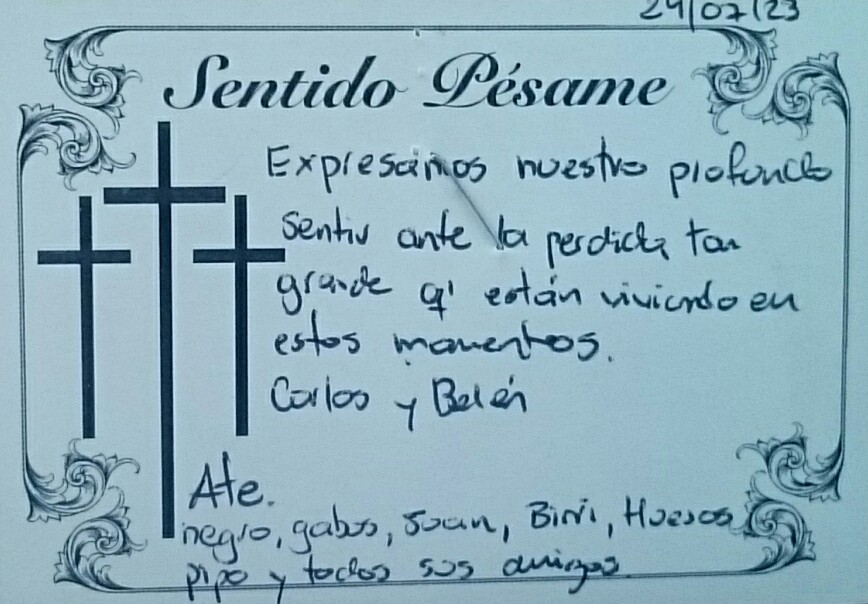 24/07/23
Sentido Pésame
Expresamos nuestro profundo
sentir ante la perdida tan
grande q' están viviendo en
estos momentos.
Carlos y Belén
Ate.
negro, gabos, Juan, Biri, Huesos
pipo y todos sus amigos